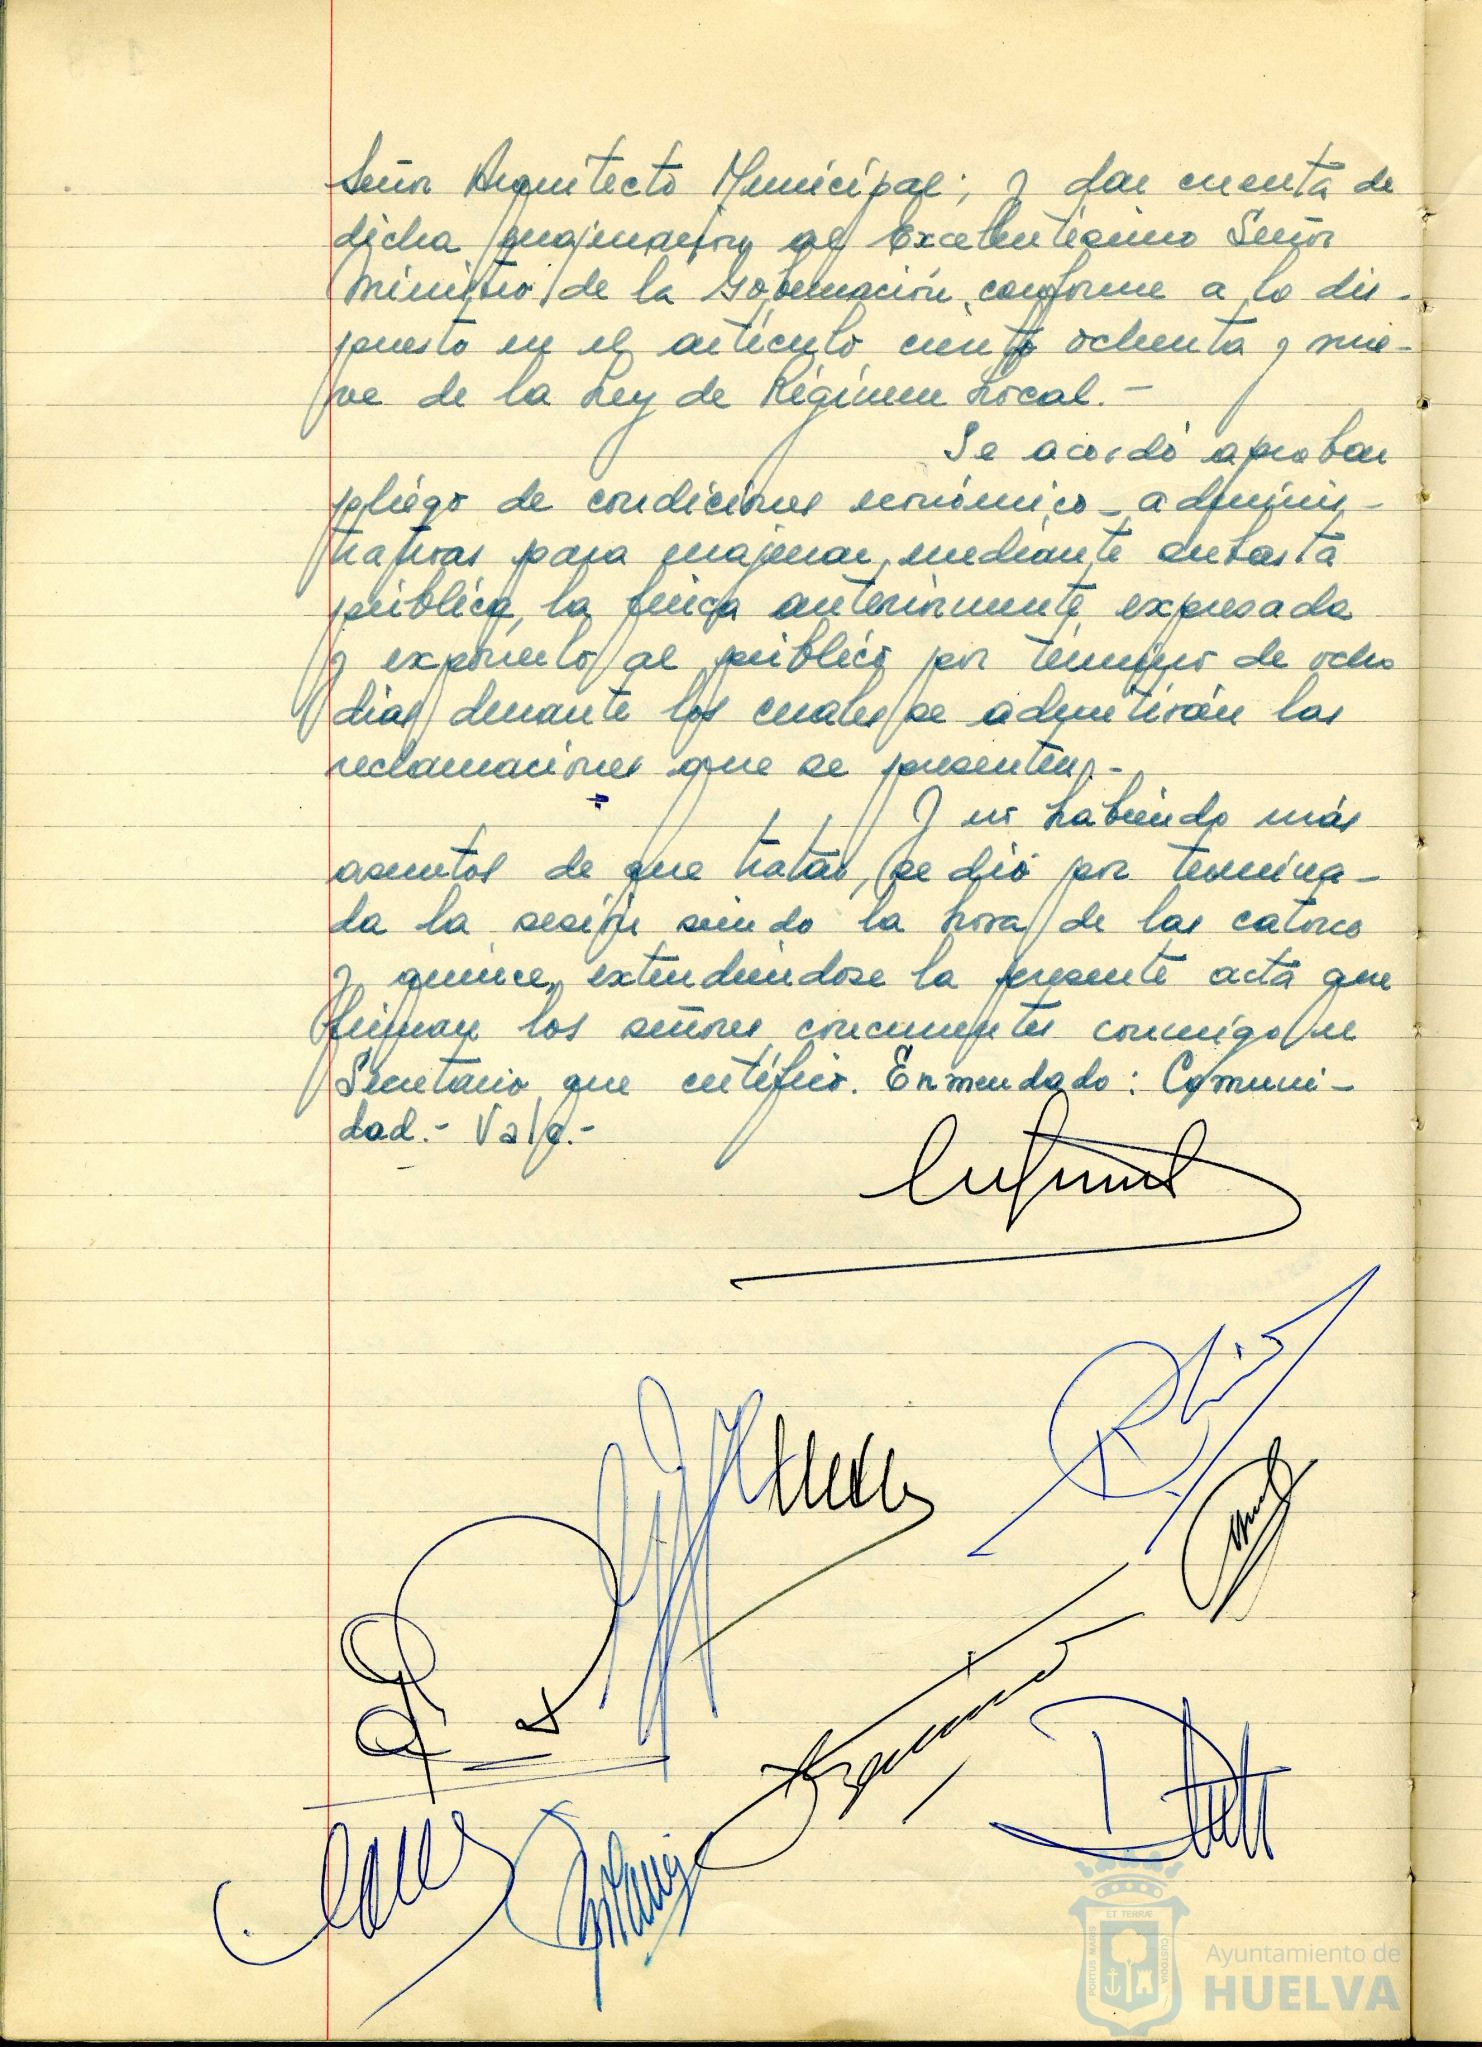 Señor Arquitecto Municipal; y dar cuenta de
dicha enajenación al Excelentísimo Señor
Ministro de la Gobernación, conforme a lo dis-
puesto en el artículo ciento ochenta y nue-
ve de la Ley de Régimen Local.-
Se acordó aprobar
pliego de condiciones económico-adminis-
trativas para enajenar, mediante subasta
pública, la finca anteriormente expresada
y exponerlo al público por término de ocho
días durante los cuales se admitirán las
reclamaciones que se presenten.-
Y no habiendo más
asuntos de que tratar, se dió por termina-
da la sesión siendo la hora de las catorce
y quince, extendiéndose la presente acta que
firman los señores concurrentes conmigo el
Secretario que certifico. Enmendado: Comuni-
dad.- Vale.-
PORTUS MARIS ET TERRAE CUSTODIA
Ayuntamiento de
HUELVA